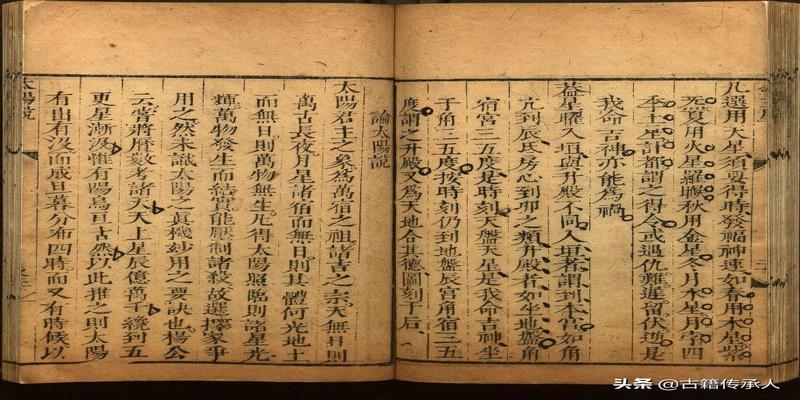 凡選用天星須要得時發福神速如春用木星紫
炁夏用火星羅㬋秋用金星冬月木星月孛四
季土星計都謂之得令或遇仇難遲留伏逆是
我命吉神亦能為禍
葢星曜入垣與升殿不同入垣者謂到本宫如角
亢到辰氐房心到卯之類升殿者如坐地盤角
宿宫三五度是時刻天盤天星是我命吉神坐
于角三五度按時刻仍到地盤辰宫角宿三五
度謂之升殿又為天地合其德圖刻于后
論太陽說
太陽君主之象為萬宿之祖諸吉之宗天無日則
萬古長夜月星諸宿而無日則其體何光地土
而無日則萬物無生凡得太陽照臨則諸星光
輝萬物發生而結實能壓制諸殺故選擇家爭
用之然未識太陽之真機妙用之要訣也楊公
云嘗將曆數考諸天天上星辰億萬千纔到五
更星漸沒惟有陽烏亘古然以此推之則太陽
有出有沒而成旦暮分布四時而又有時候以
太陽說
头条 @古籍传承人